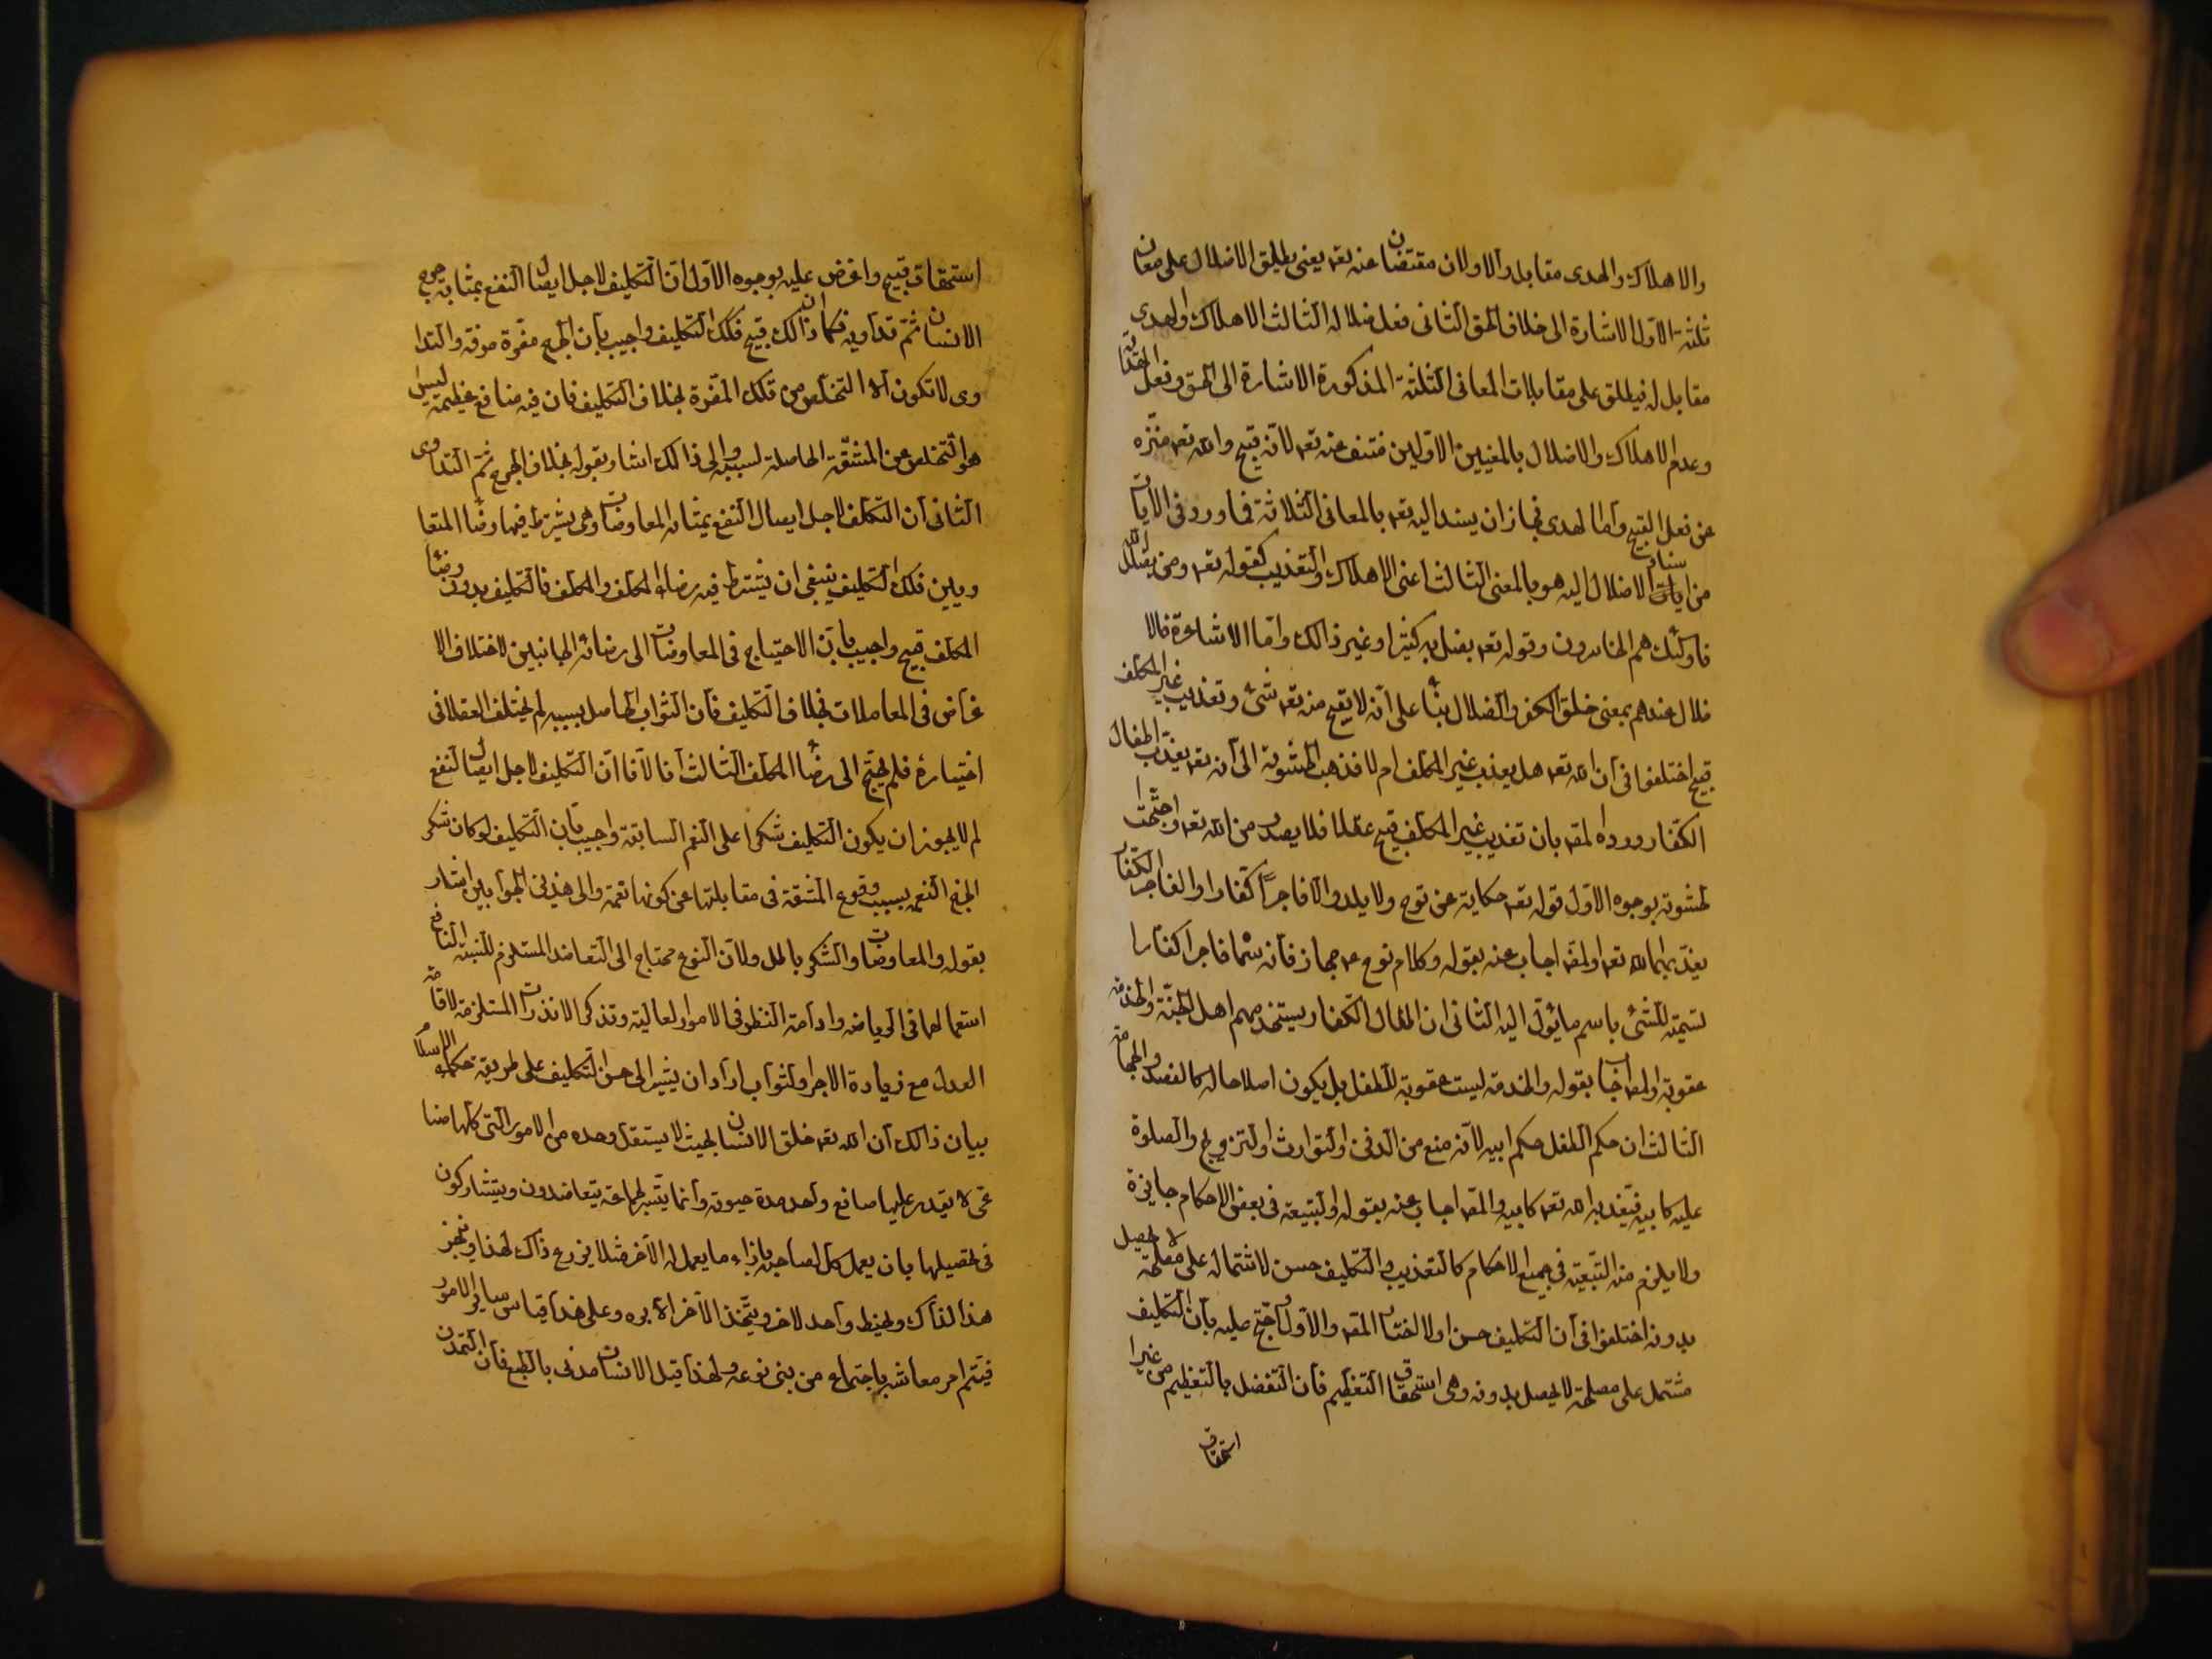 والاهلاك والهدى مقابل والاولان مقتضان عنه تعہ يعنى يطلق الاضلال على معان
ثلثة الاول الاشارة الى خلاف الحق الثانى فعل ضلاله الثالث الاهلاك والهدى
مقابل له فيطلق على مقابلات المعانى الثلثة المذكورة الاشارة الى الحق وفعل الهداية
وعدم الاهلاك والاضلال بالمعنيين الاولين منتف عنه تعہ لانه قبيح والله تعہ منزه
عن فعل القبيح واما الهدى فجاز ان يسند اليه تعہ بالمعانى الثلاثة فما ورد فى الايات
من اسناد الاضلال اليه هو بالمعنى الثالث اعنى الاهلاك والتعذيب كقوله تعہ ومن يضلل الله
فاولئك هم الخاسرون وقوله تعہ يضل به كثيرا وغير ذالك واما الاشاعرة فالا
ضلال عندهم بمعنى خلق الكفر والضلال بنا على انه لا يقبح منه تعہ شئ وتعذيب غير المكلف
قبيح اختلفوا فى ان الله تعہ هل يعذب غير المكلف ام لا فذهب الحشوية الى انه تعہ يعذب اطفال
الكفار ورداه لمصہ بان تعذيب غير المكلف قبيح عقلا فلا يصدر من الله تعہ واحتجت ا
لحشوية بوجوه الاول قوله تعہ حكاية عن نوح ولا يلدوا الا فاجرا كفارا والفاجر الكفار
يعذبهما الله تعہ والمصہ اجاب عنه بقوله وكلام نوح عہ مجاز فانه سما فاجرا كفارا
تسمية للشئ باسم مايؤل اليه الثانى ان اطفال الكفار يستخدمهم اهل الجنة والخدمة
عقوبة والمصہ اجاب بقوله والخدمة ليست عقوبة للطفل بل يكون اصلاحا له كالفصد والحجامة
الثالث ان حكم الطفل حكم ابيه لانه منع من الدفن والتوارث والتزويج والصلوة
عليه كابيه فيعذبه الله تعہ كابيه والمصہ اجاب عنه بقوله والتبعية فى بعض الاحكام جايزة
ولا يلزم منه التبعية فى جميع الاحكام كالتعذيب والتكليف حسن لاشتماله على مصلحة لا تحصل
بدونه اختلفوا فى ان التكليف حسن اولا اختار المصہ الاول واحتج عليه بان التكليف
مشتمل على مصلحة لا يحصل بدونه وهى استحقاق التعظيم فان التفضل بالتعظيم من غير ا
استحقاق
استحقاق قبيح واعترض عليه بوجوه الاول ان التكليف لاجل ايصال النفع بمثابة جرح
الانسان ثم تداويه فكما ان ذالك قبيح فكك التكليف واجيب بان الجرح مضرة موقة والتدا
وى لا تكون الا التخلص من تلك المضرة بخلاف التكليف فان فيه منافع عظيمة ليس
هو التخلص عن المشقة الحاصلة بسببه والى ذالك اشار بقوله بخلاف الجرح ثم التداوى
الثانى ان التكلف لاجل ايصال النفع بمثابة المعاوضات وهى يشترط فيها رضاء المتعا
وضين فكك التكليف ينبغى ان يشترط فيه رضاء المكلف والمكلف فالتكليف بدون رضاء
المكلف قبيح واجيب بان الاحتياج فى المعاوضات الى رضائه الجانبين لاختلاف الا
غراض فى المعاملات بخلاف التكليف فان الثواب الحاصل بسببه لم يختلف العقلا فى
اختياره فلم يحتج الى رضاء المكلف الثالث انا لا نا ان التكليف لاجل ايصال النفع
لم لا يجوز ان يكون التكليف شكرا على النعم السابقة واجيب بان التكليف لو كان شكر
الخرج النعمة بسبب وقوع المشقة فى مقابلتها عن كونها نعمة والى هذين الجوابين اشار
بقوله والمعاوضات والشكر باطل ولان النوع محتاج الى التعاضد المستلزم للسنة النافع
استعمالها فى الرياضة وادامة النظر فى الامور العالية وتذكر الانذرات المستلزمة لاقامة
العدل مع زيادة الاجر والثواب اراد ان يشير الى حسن التكليف على طريقة حكماء الاسلام
بيان ذالك ان الله تعہ خلق الانسان بحيث لا يستقل وحده من الامور التى كلها صنا
عى لا يقدر عليها صانع واحد مدة حيوته وانما يتيسر لجماعة يتعاضدون ويتشاركون
فى تحصيلها بان يعمل كل لصاحبه بازاء ما يعمل له الآخر مثلا يزرع ذاك لهذا ويخبز
هذا لذاك ويخيط واحد لاخر ويتخذ الآخر الابره وعلى هذا قياس ساير الامور
فيتم امر معاشه باجتماع من بنى نوعه ولهذا قيل الانسان مدنى بالطبع فان التمدن